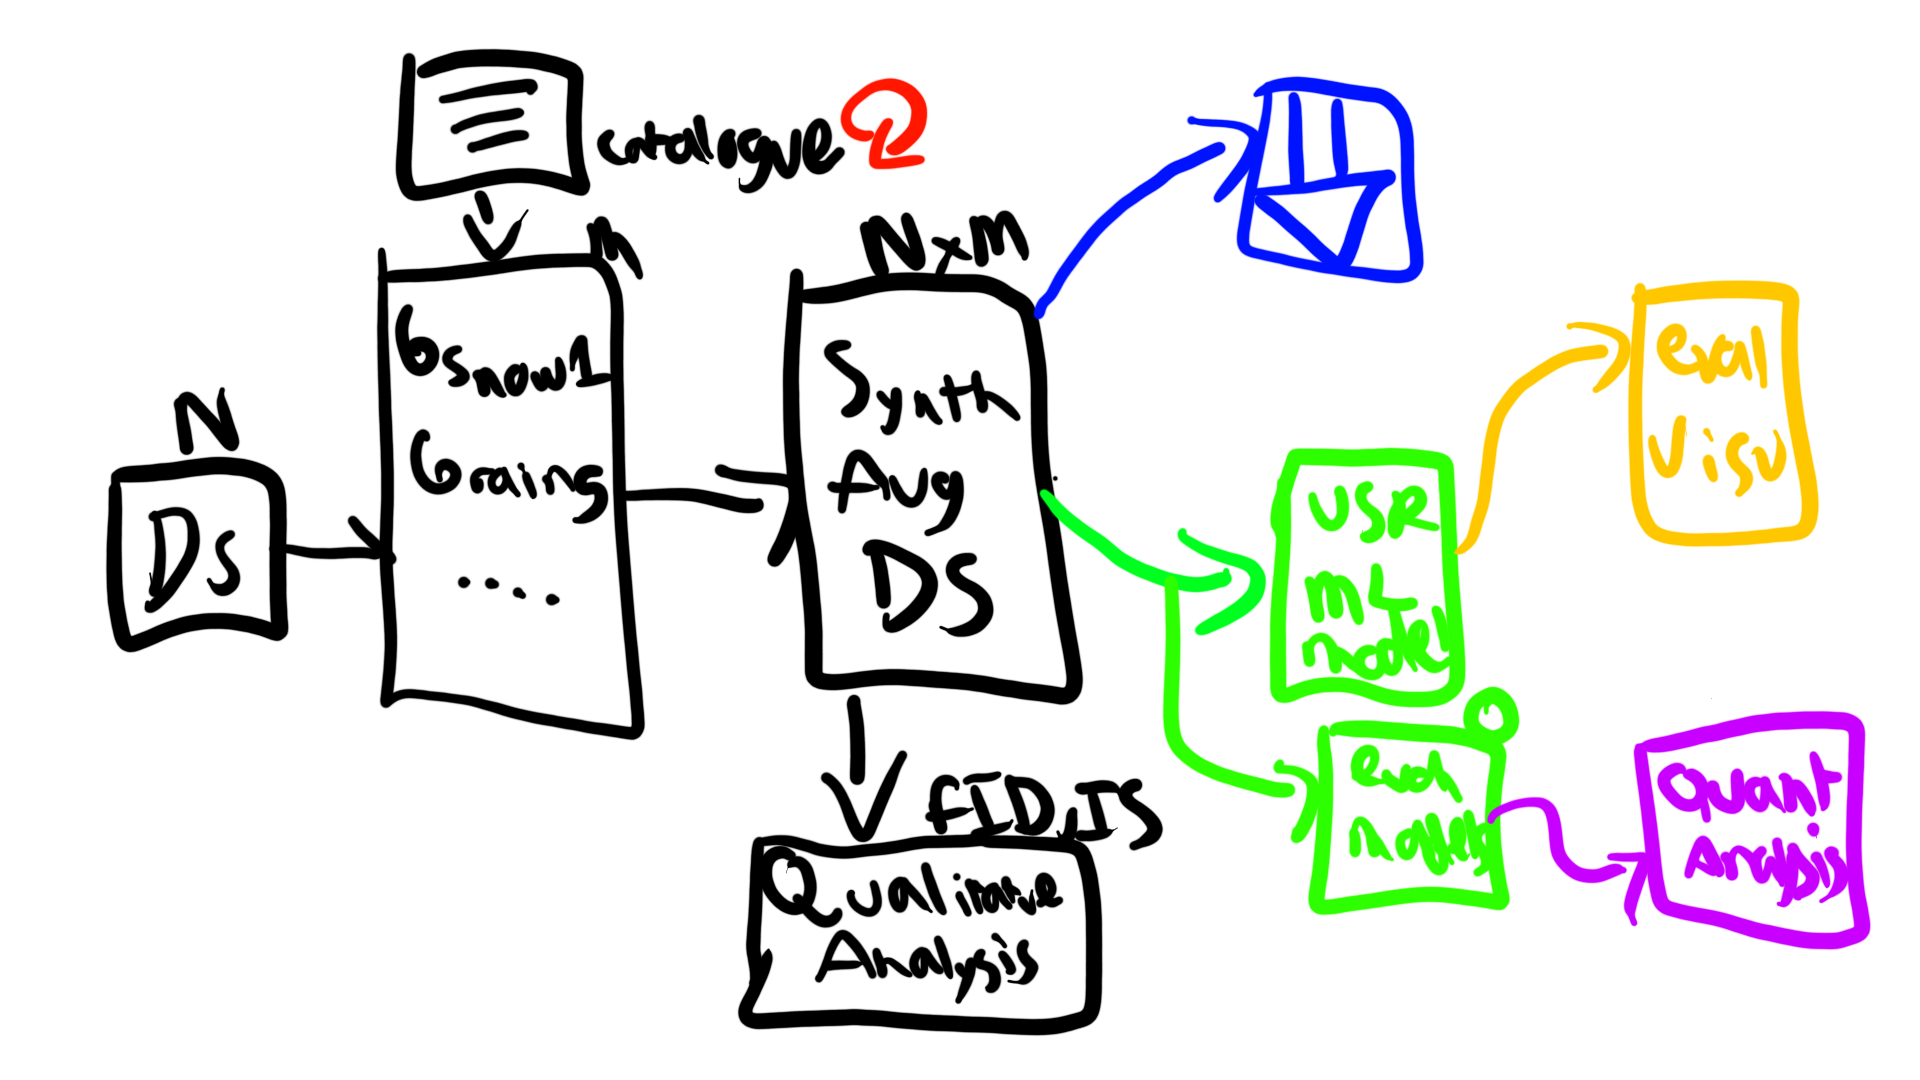 catalogue
M
N
DS
Gsnow1
Grain5
....
N x M
Synth
Aug
DS
FID, IS
Qualitative
Analysis
USR
ML
model
eval
Visu
models
Quant
Analysis